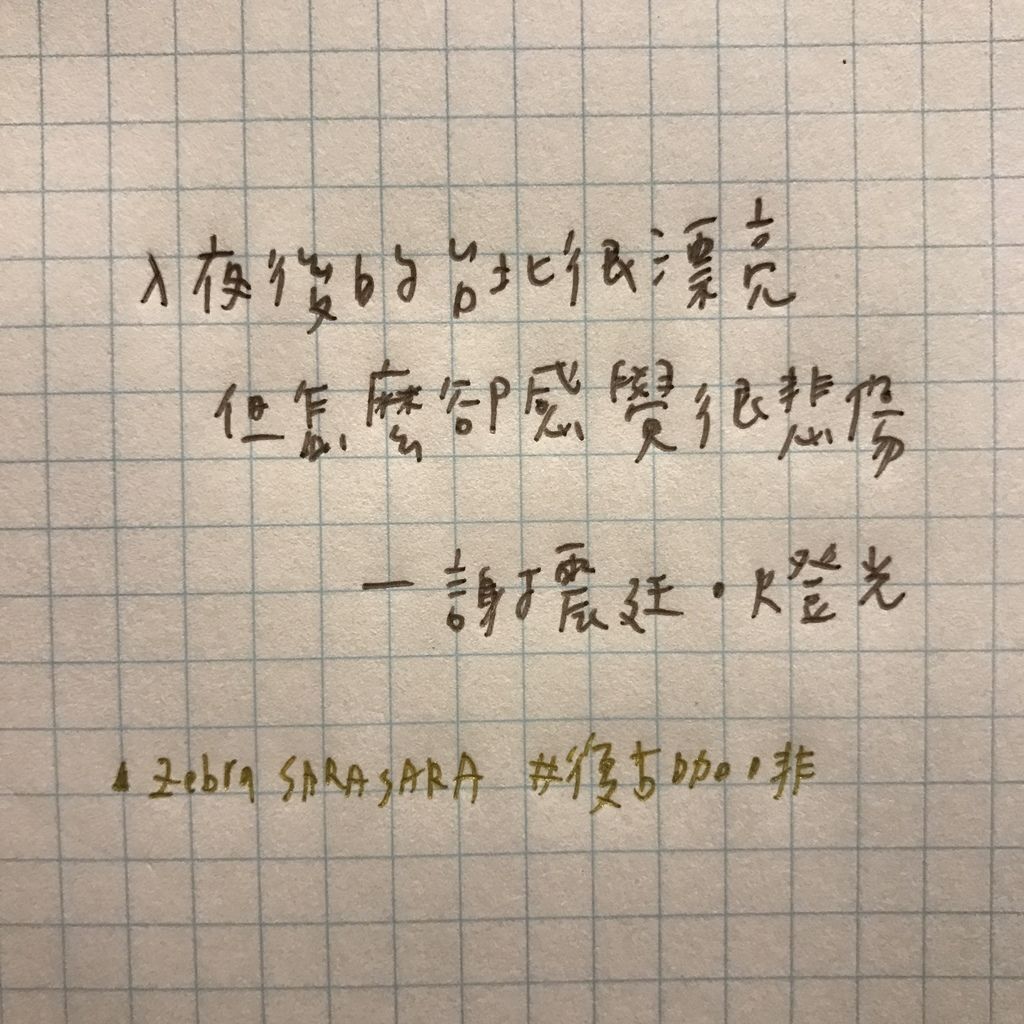 入夜後的台北很漂亮
但怎麼卻感覺很悲傷
— 謝震廷・燈光
▲ Zebra SARASARA #復古咖啡